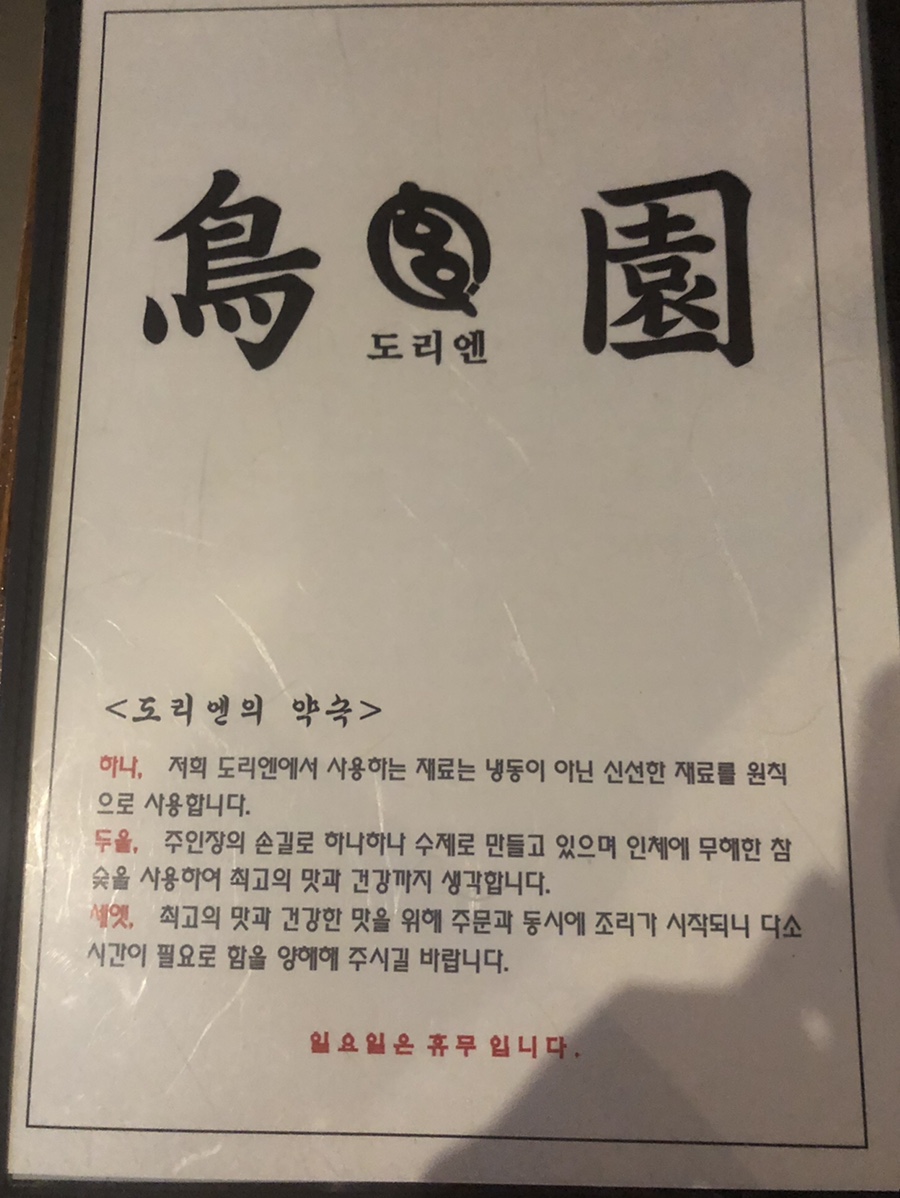 鳥 園
도리엔
<도리엔의 약속>
하나, 저희 도리엔에서 사용하는 재료는 냉동이 아닌 신선한 재료를 원칙
으로 사용합니다.
두울, 주인장의 손길로 하나하나 수제로 만들고 있으며 인체에 무해한 참
숯을 사용하여 최고의 맛과 건강까지 생각합니다.
세엣, 최고의 맛과 건강한 맛을 위해 주문과 동시에 조리가 시작되니 다소
시간이 필요로 함을 양해해 주시길 바랍니다.
일요일은 휴무 입니다.